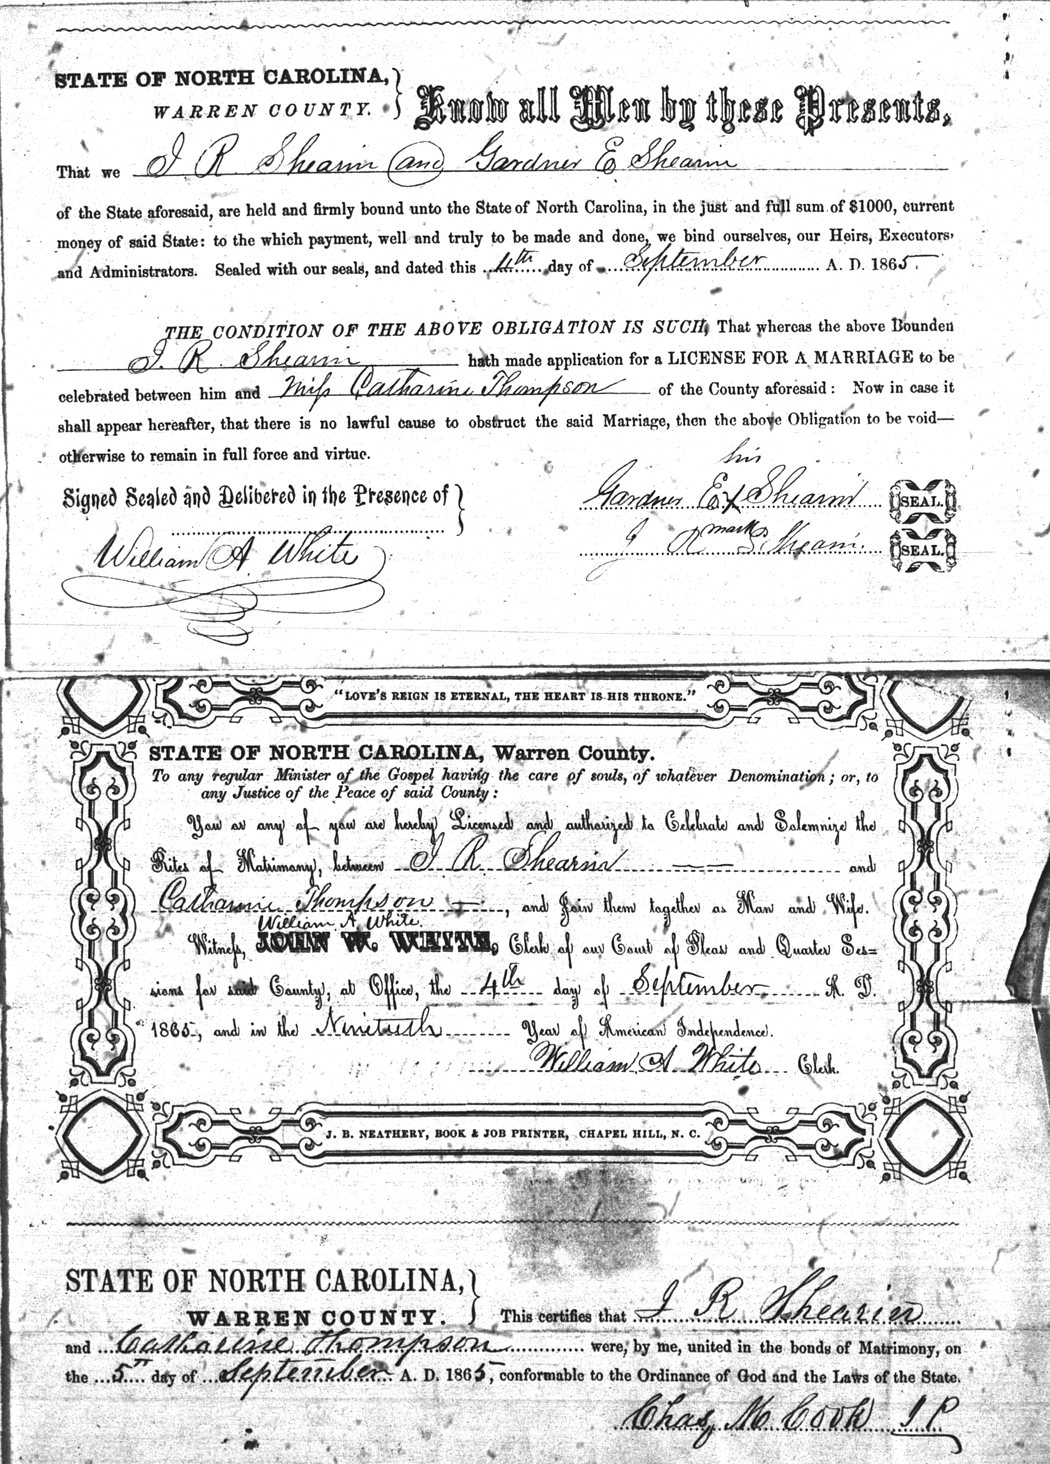 STATE OF NORTH CAROLINA,
WARREN COUNTY.
Know all Men by these Presents,
That we J R Shearin and Gardner E Shearin
of the State aforesaid, are held and firmly bound unto the State of North Carolina, in the just and full sum of $1000, current
money of said State: to the which payment, well and truly to be made and done, we bind ourselves, our Heirs, Executors
and Administrators. Sealed with our seals, and dated this 4th day of September A. D. 1865.
THE CONDITION OF THE ABOVE OBLIGATION IS SUCH, That whereas the above Bounden
J. R. Shearin hath made application for a LICENSE FOR A MARRIAGE to be
celebrated between him and Miss Catharine Thompson of the County aforesaid: Now in case it
shall appear hereafter, that there is no lawful cause to obstruct the said Marriage, then the above Obligation to be void—
otherwise to remain in full force and virtue.
his
Signed Sealed and Delibered in the Presence of
Gardner E X Shearin SEAL.
mark
William A White
J R Shearin SEAL.
"LOVE'S REIGN IS ETERNAL, THE HEART IS HIS THRONE."
STATE OF NORTH CAROLINA, Warren County.
To any regular Minister of the Gospel having the care of souls, of whatever Denomination; or, to
any Justice of the Peace of said County:
You or any of you are hereby Licensed and authorized to Celebrate and Solemnize the
Rites of Matrimony, between J R Shearin and
Catharine Thompson, and Join them together as Man and Wife.
William A White
Witness, JOHN W. WHITE, Clerk of our Court of Pleas and Quarter Ses=
sions for said County, at Office, the 4th day of September A. D.
1865, and in the Ninetieth Year of American Independence.
William A. White Clerk.
J. B. NEATHERY, BOOK & JOB PRINTER, CHAPEL HILL, N. C.
STATE OF NORTH CAROLINA,
WARREN COUNTY.
This certifies that J R Shearin
and Catharine Thompson were, by me, united in the bonds of Matrimony, on
the 5th day of September A. D. 1865, conformable to the Ordinance of God and the Laws of the State.
Chas M Cook J P